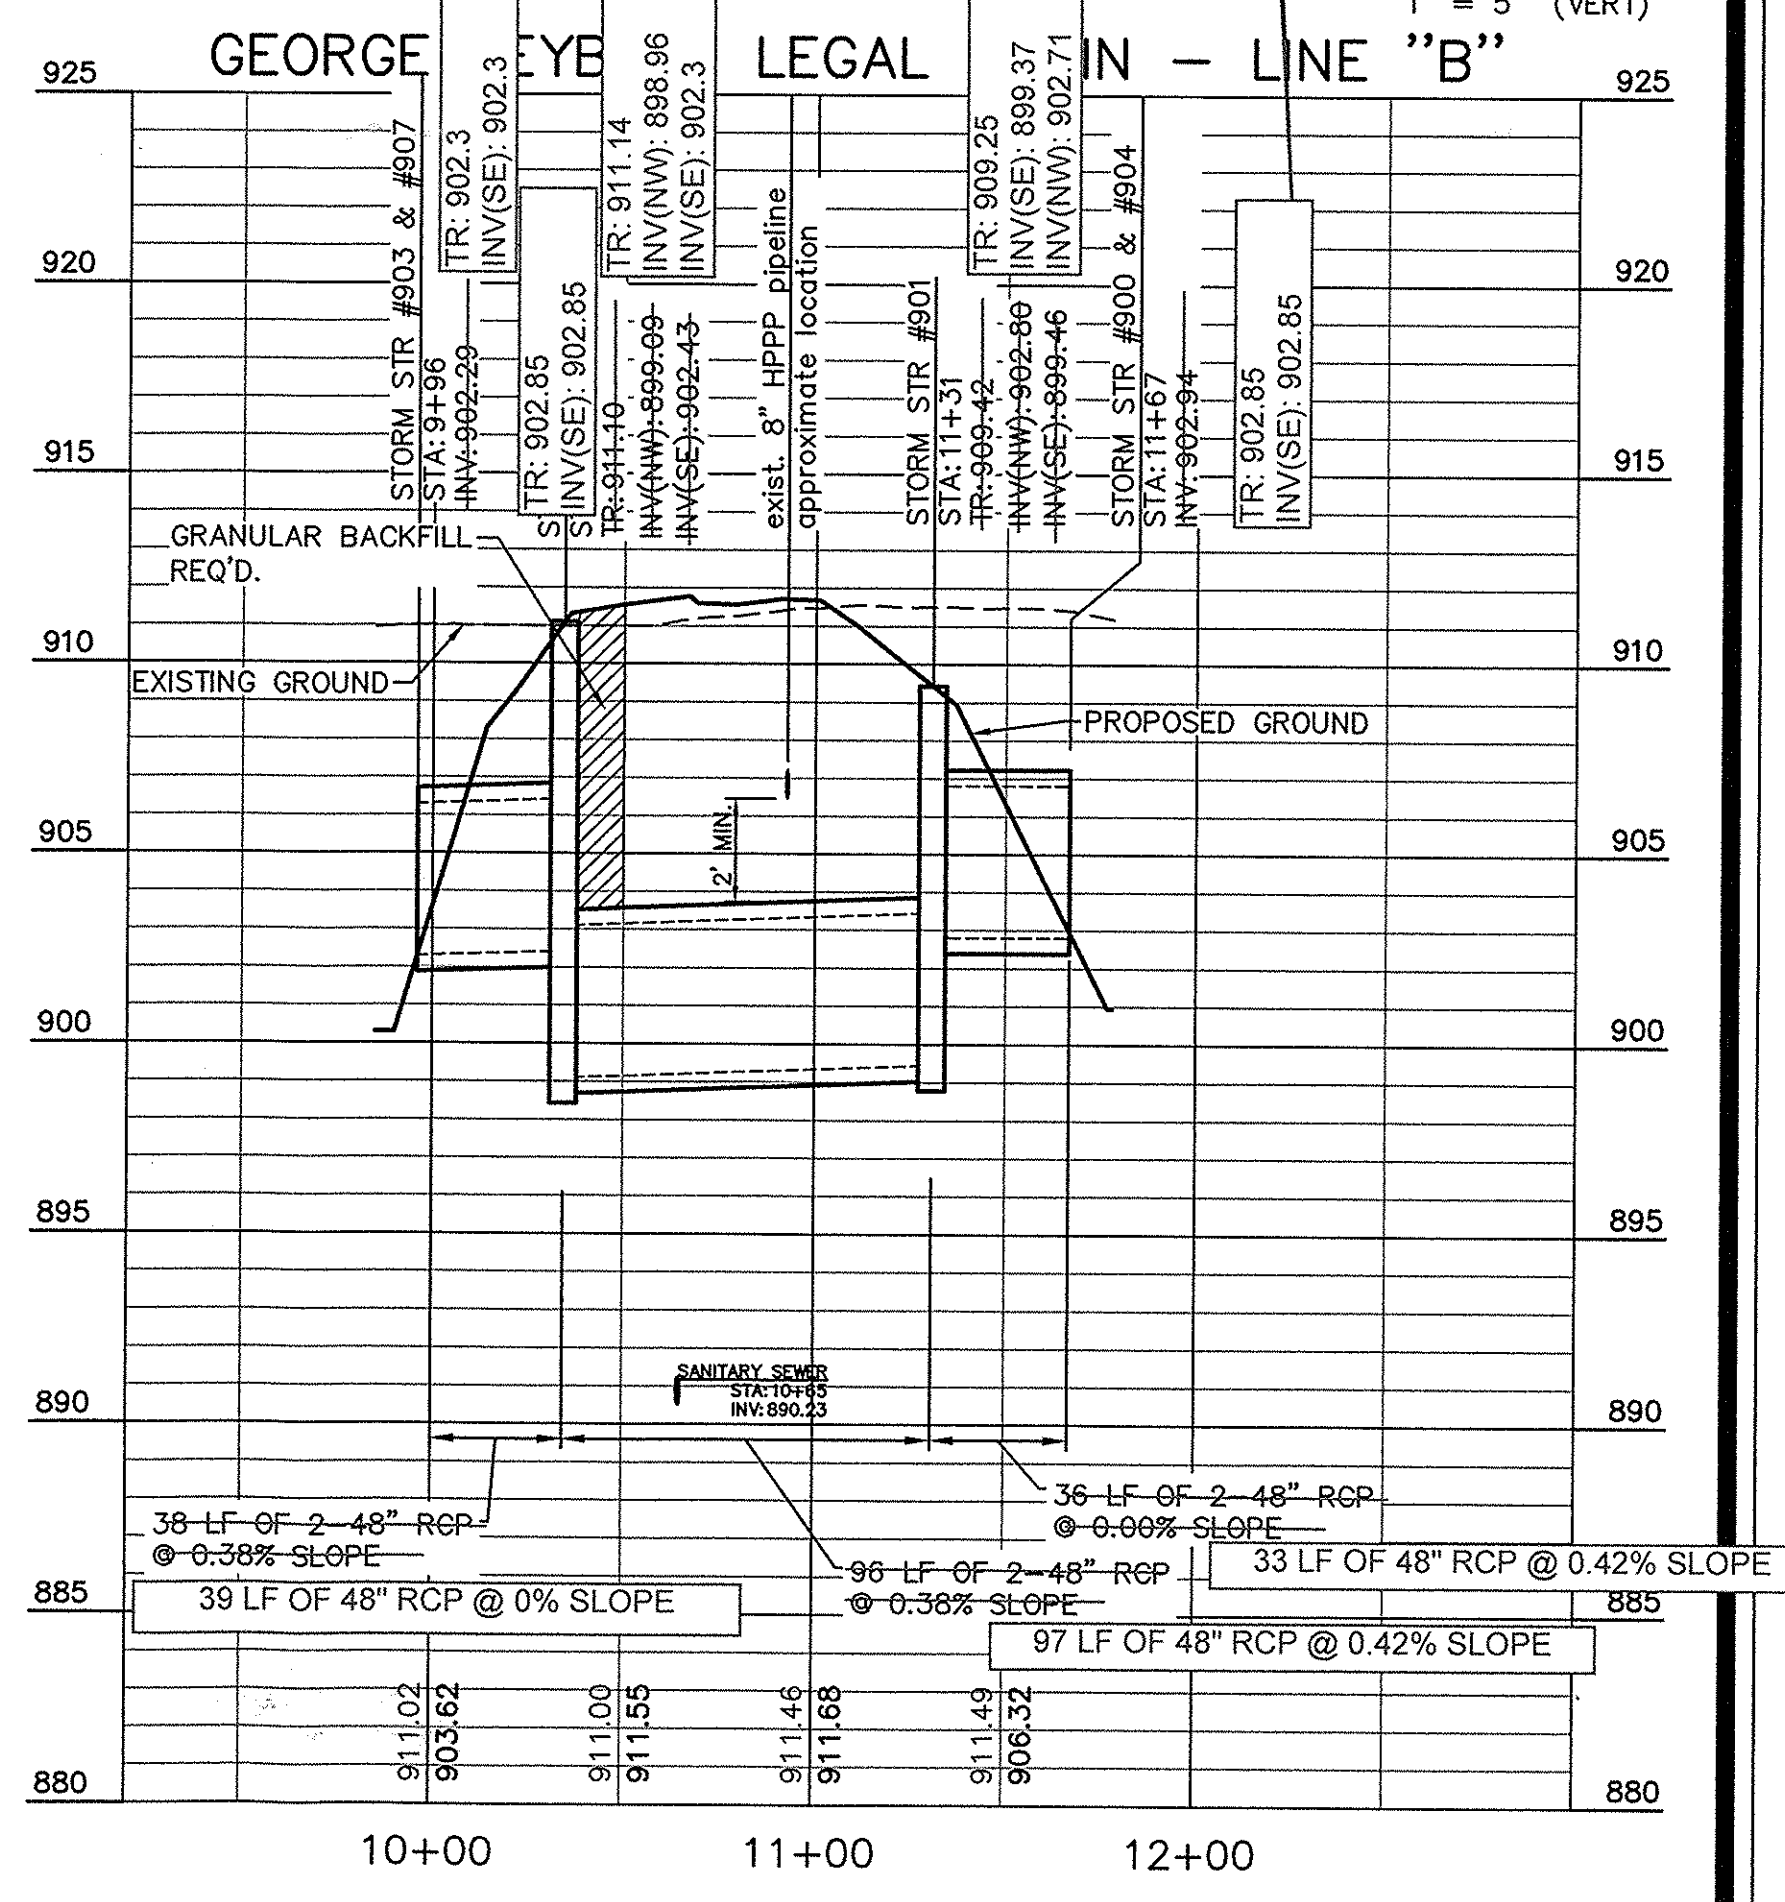 1" = 5' (VERT)
GEORGE EYB LEGAL IN - LINE "B"
925
925
920
920
915
915
910
910
905
905
900
900
895
895
890
890
885
885
880
880
STORM STR #903 & #907
STA: 9+96
INV: 902.29
TR: 902.3
INV(SE): 902.3
TR: 902.85
INV(SE): 902.85
S
S
TR: 911.10
INV(NW): 899.09
INV(SE): 902.43
TR: 911.14
INV(NW): 898.96
INV(SE): 902.3
exist. 8" HPPP pipeline
approximate location
STORM STR #901
STA: 11+31
TR: 909.42
INV(NW): 902.80
INV(SE): 899.46
TR: 909.25
INV(SE): 899.37
INV(NW): 902.71
STORM STR #900 & #904
STA: 11+67
INV: 902.94
TR: 902.85
INV(SE): 902.85
GRANULAR BACKFILL
REQ'D.
EXISTING GROUND
PROPOSED GROUND
2' MIN.
SANITARY SEWER
STA: 10+65
INV: 890.23
38 LF OF 2-48" RCP
@ 0.38% SLOPE
39 LF OF 48" RCP @ 0% SLOPE
96 LF OF 2-48" RCP
@ 0.38% SLOPE
97 LF OF 48" RCP @ 0.42% SLOPE
36 LF OF 2-48" RCP
@ 0.00% SLOPE
33 LF OF 48" RCP @ 0.42% SLOPE
911.02
903.62
911.00
911.55
911.46
911.68
911.49
906.32
10+00
11+00
12+00